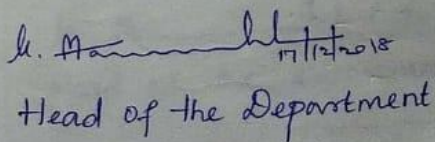 17/12/2018
Head of the Department